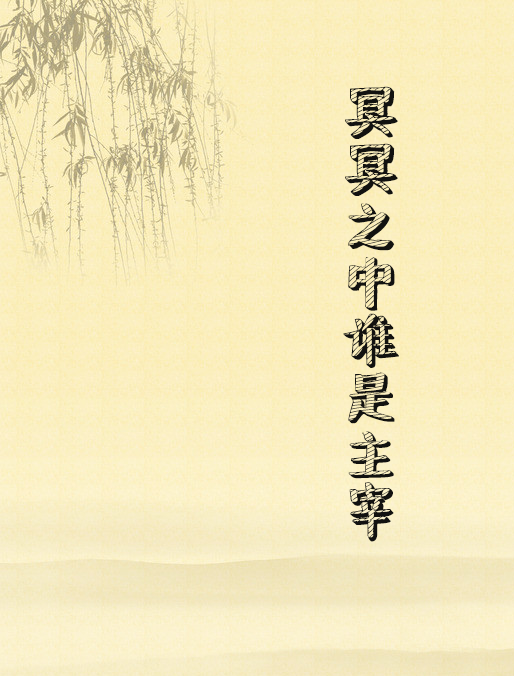 冥冥之中堆是主宰